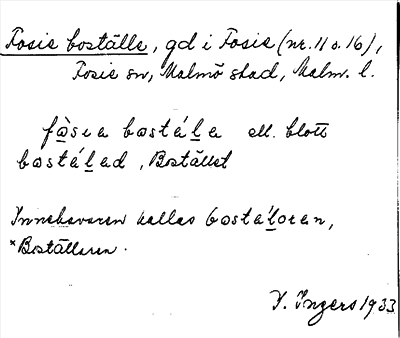 Fosie boställe, gd i Fosie (nr. 11 o. 16),
Fosie sn, Malmö stad, Malm. l.
fòsia bostála ell. blott
bostálad, Bostället
Innehavaren kallas bostáloran,
*Boställaren.
I. Ingers 1933